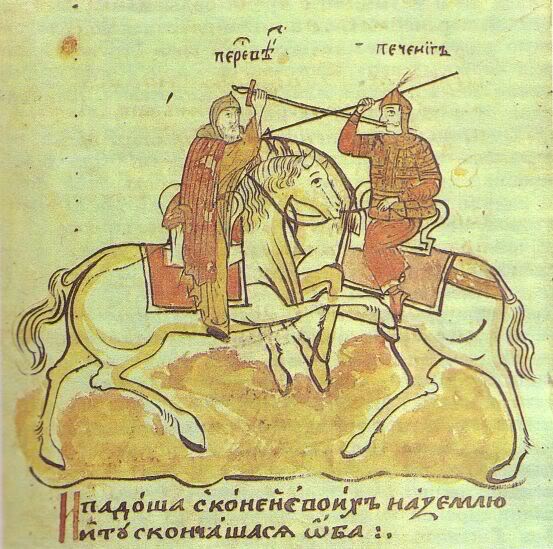 пере​ⷭвѣⷮ печенѣгъ
И падо́ша с коней свои́хъ на́ ꙁемлю
и ту́ сконча́шася ѡ҆́ба :.